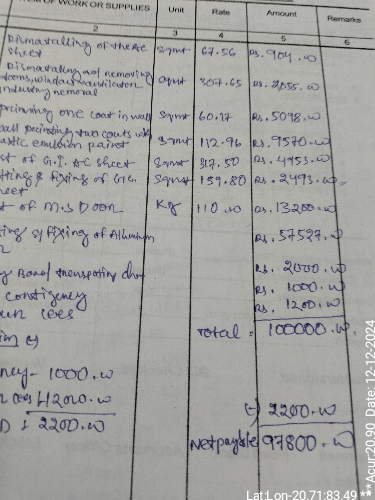 ITEM OF WORK OR SUPPLIES Unit Rate Amount Remarks
2 3 4 5 6
Dismatalling of the AC sheet Sqmt 67.56 Rs. 904.00
Dismatalling and removing
doors, windows, ventilators
including removal Sqmt 307.65 Rs. 2055.00
priming one coat in wall Sqmt 60.17 Rs. 5098.00
wall painting two coats with
plastic emulsion paint Sqmt 112.96 Rs. 9570.00
Cost of G.I. AC sheet Sqmt 317.50 Rs. 4953.00
fitting & fixing of G.I.
sheet Sqmt 159.80 Rs. 2493.00
Cost of M.S Door Kg 110.00 Rs. 13200.00
fixing of Aluminum
Rs. 57527.00
Rs. 2000.00
contigency Rs. 1000.00
cess Rs. 1200.00
Total = 100000.00
1000.00
1200.00 (-) 2200.00
2200.00
Net payble 97800.00
LatLon-20.71:83.49
***Acur:20.90 Date:12-12-2024